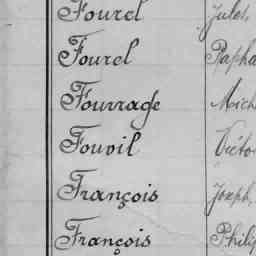 Fourel Jules,
Fourel Rapha
Fourrage Mich
Fouvil Victo
François Joseph,
François Philip